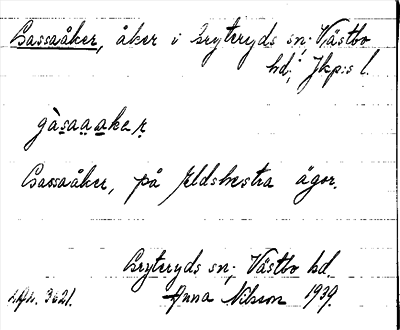 Gassaåker, åker i Gryteryds sn; Västbo
hd; Jkp:s l.
gàsaaakar
Gassaåker, på Eldshestra ägor.
Gryteryds sn; Västbo hd.
Anna Nilsson 1939.
3621.